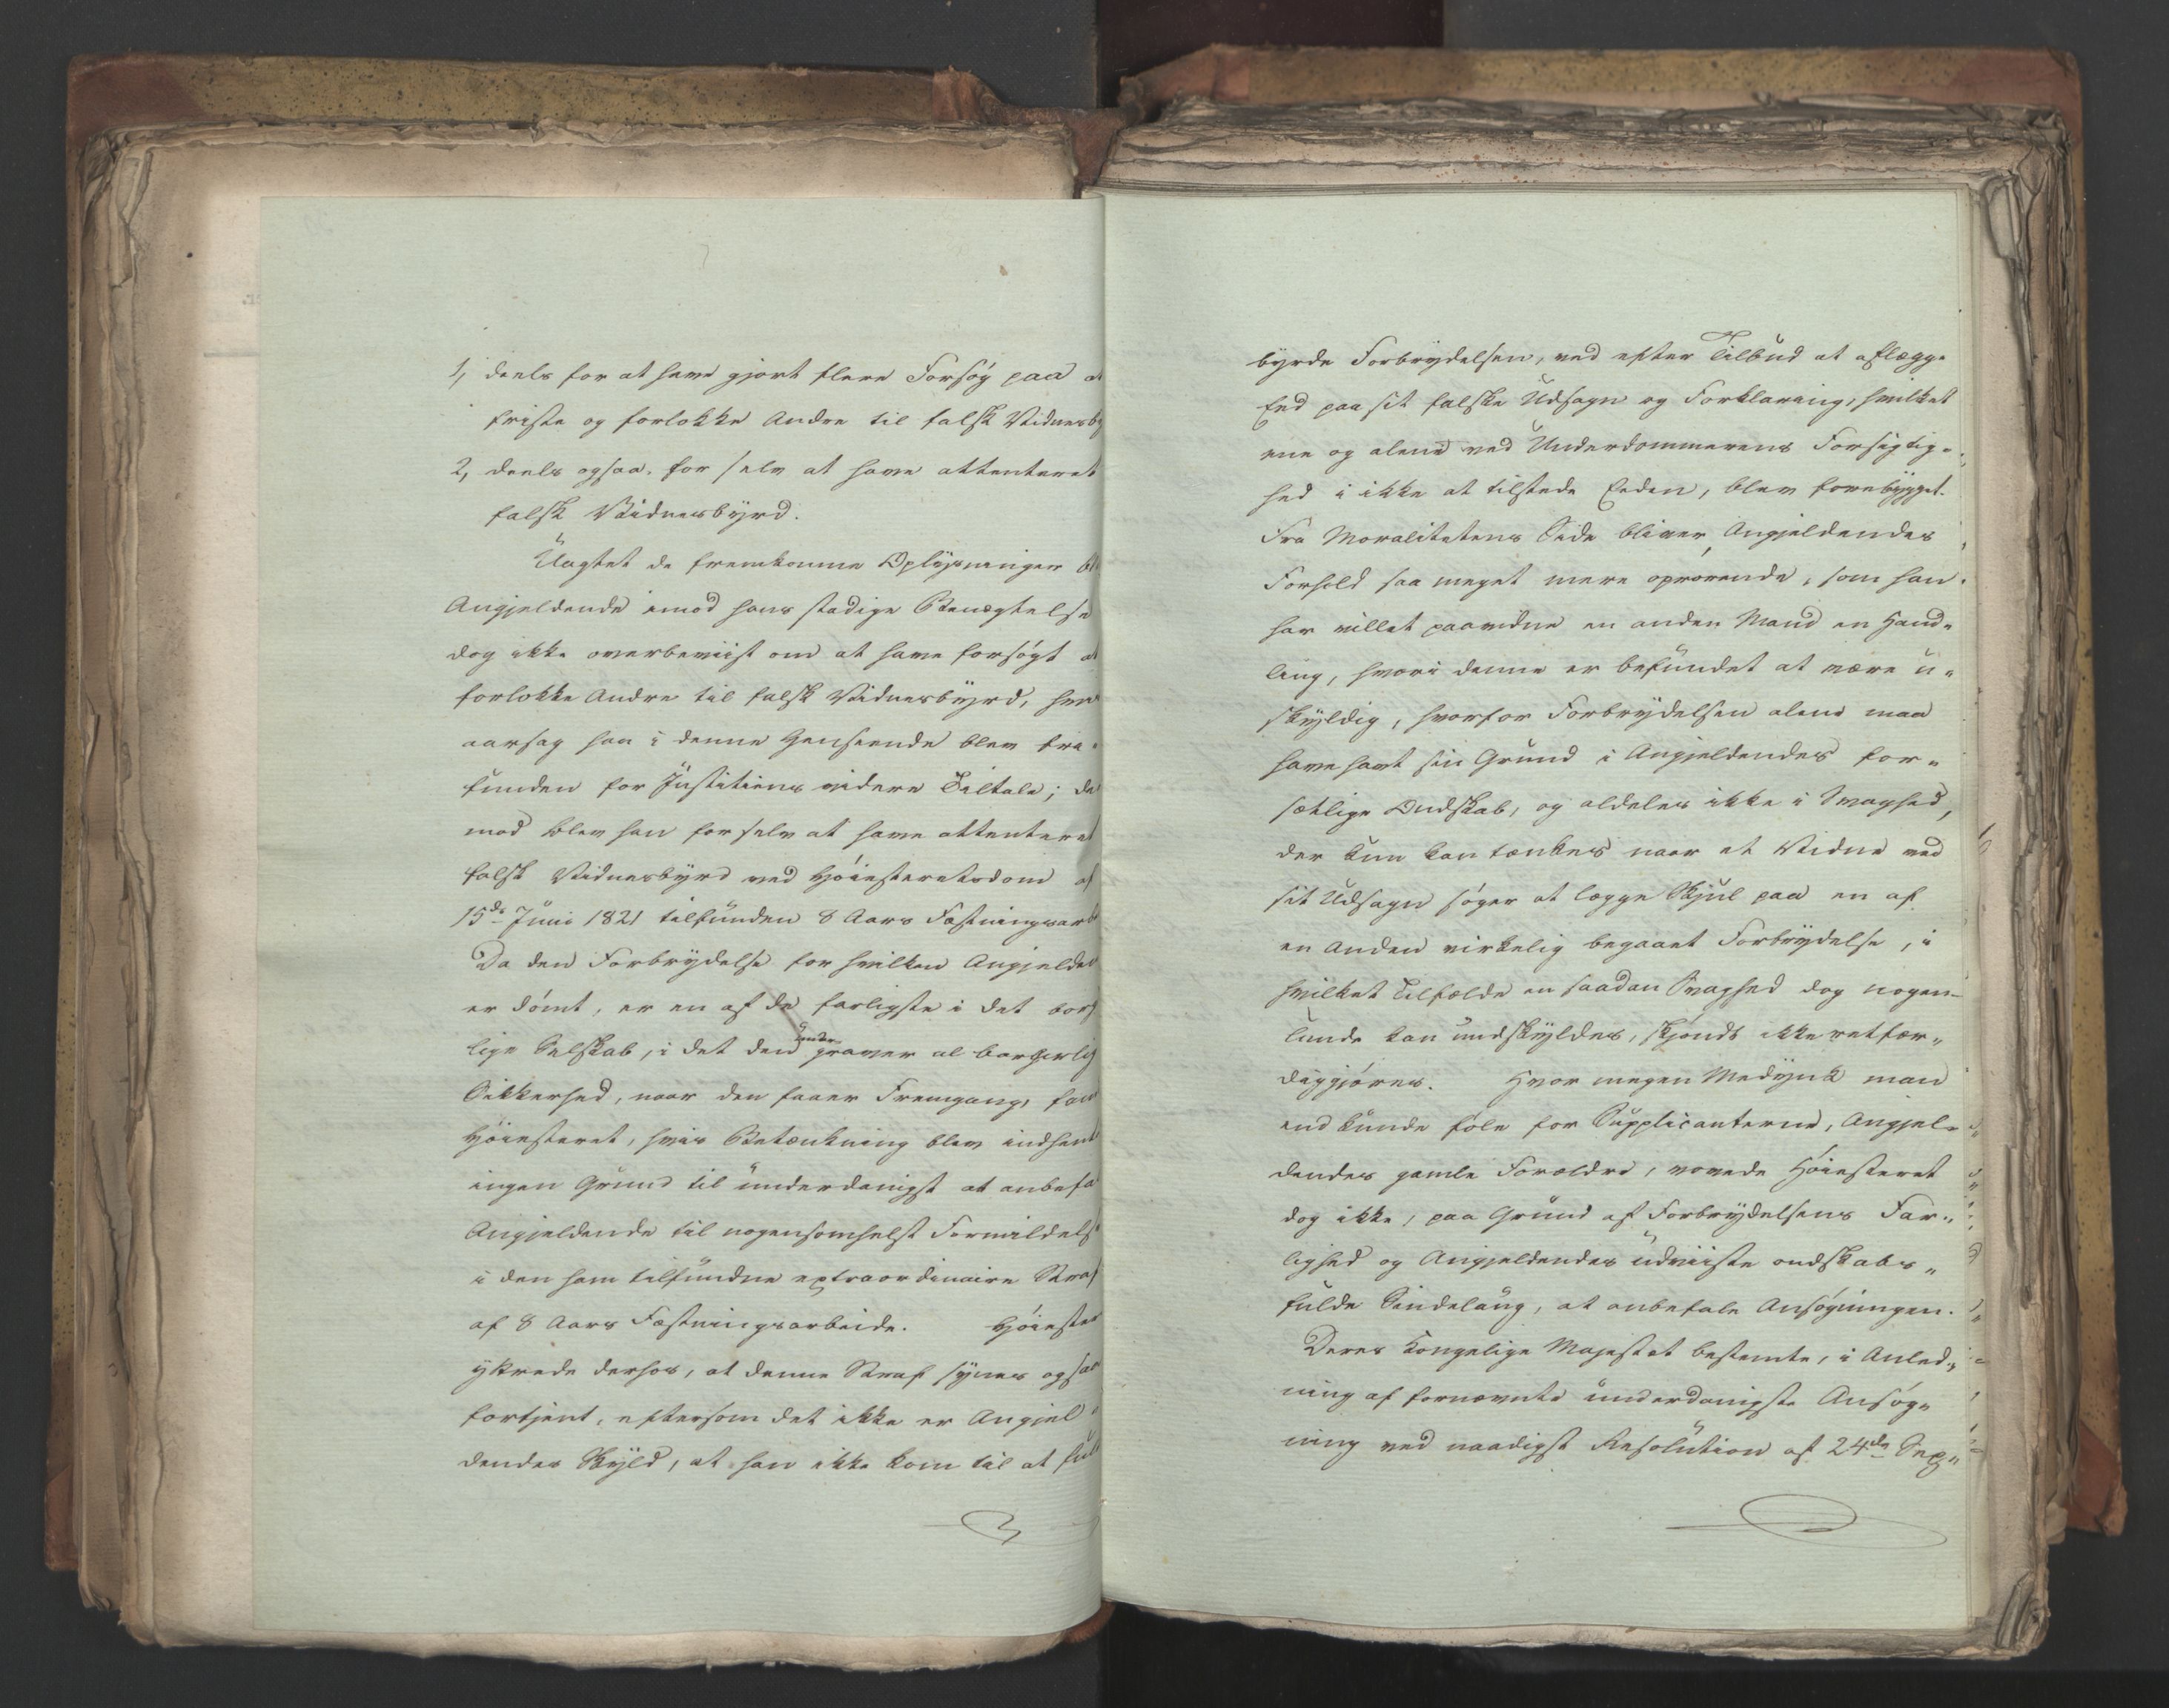 1, deels for at have gjort flere Forsøg paa at
friste og forlokke Andre til falsk Vidnesby
2, deels ogsaa, for selv at have attenteret
falsk Vidnesbyrd.
Uagtet de fremkomne Oplysninger bl
Angjeldende imod hans stadige Benægtelse
dog ikke overbeviist om at have forsøgt at
forlokke Andre til falsk Vidnesbyrd, hvor
aarsag han i denne Henseende blev fri-
funden for Justitiens videre Tiltale; de
mod blev han for selv at have attenteret
falsk Vidnesbyrd ved Høiesteretsdom af
15de Juni 1821 tilfunden 8 Aars Fæstningsarb
Da den Forbrydelse for hvilken Angjelden
er dømt, er en af de farligste i det bor
lige Selskab, i det den under graver al borgerlig
Sikkerhed, naar den faaer Fremgang, fan
Høiesteret, hvis Betænkning blev indhent
ingen Grund til underdanigst at anbefa
Angjeldende til nogensomhelst Formildelse
i den ham tilfundne extraordinaire Straf
af 8 Aars Fæstningsarbeide. Høiester
yttrede derhos, at denne Straf synes ogsaa
fortjent, eftersom det ikke er Angjel-
dendes Skyld, at han ikke kom til at ful
byrde Forbrydelsen, ved efter Tilbud at aflægge
Eed paa sit falske Udsagn og Forklaring, hvilket
ene og alene ved Underdommerens Forsigtig-
hed i ikke at tilstede Eeden, blev forebygget.
Fra Moralitetens Side bliver Angjeldendes
Forhold saa meget mere oprørende, som han
har villet paavidne en anden Mand en Hand-
ling, hvori denne er befundet at være u-
skyldig, hvorfor Forbrydelsen alene maa
have havt sin Grund i Angjeldendes for-
sætlige Ondskab, og aldeles ikke i Svaghed,
der kun kan tænkes naar et Vidne ved
sit Udsagn søger at lægge Skjul paa en af
en Anden virkelig begaaet Forbrydelse, i
hvilket Tilfælde en saadan Svaghed dog nogen-
lunde kan undskyldes, skjøndt ikke retfær-
diggjøres. Hvor megen Medynk man
end kunde føle for Supplicanterne, Angjel-
dendes gamle Forældre, vovede Høiesteret
dog ikke, paa Grund af Forbrydelsens Far-
lighed og Angjeldendes udviiste ondskabs-
fulde Sindelaug, at anbefale Ansøgningen.
Deres Kongelige Majestæt bestemte, i Anled-
ning af fornævnte underdanigste Ansøg-
ning ved naadigst Resolution af 24de Sep-